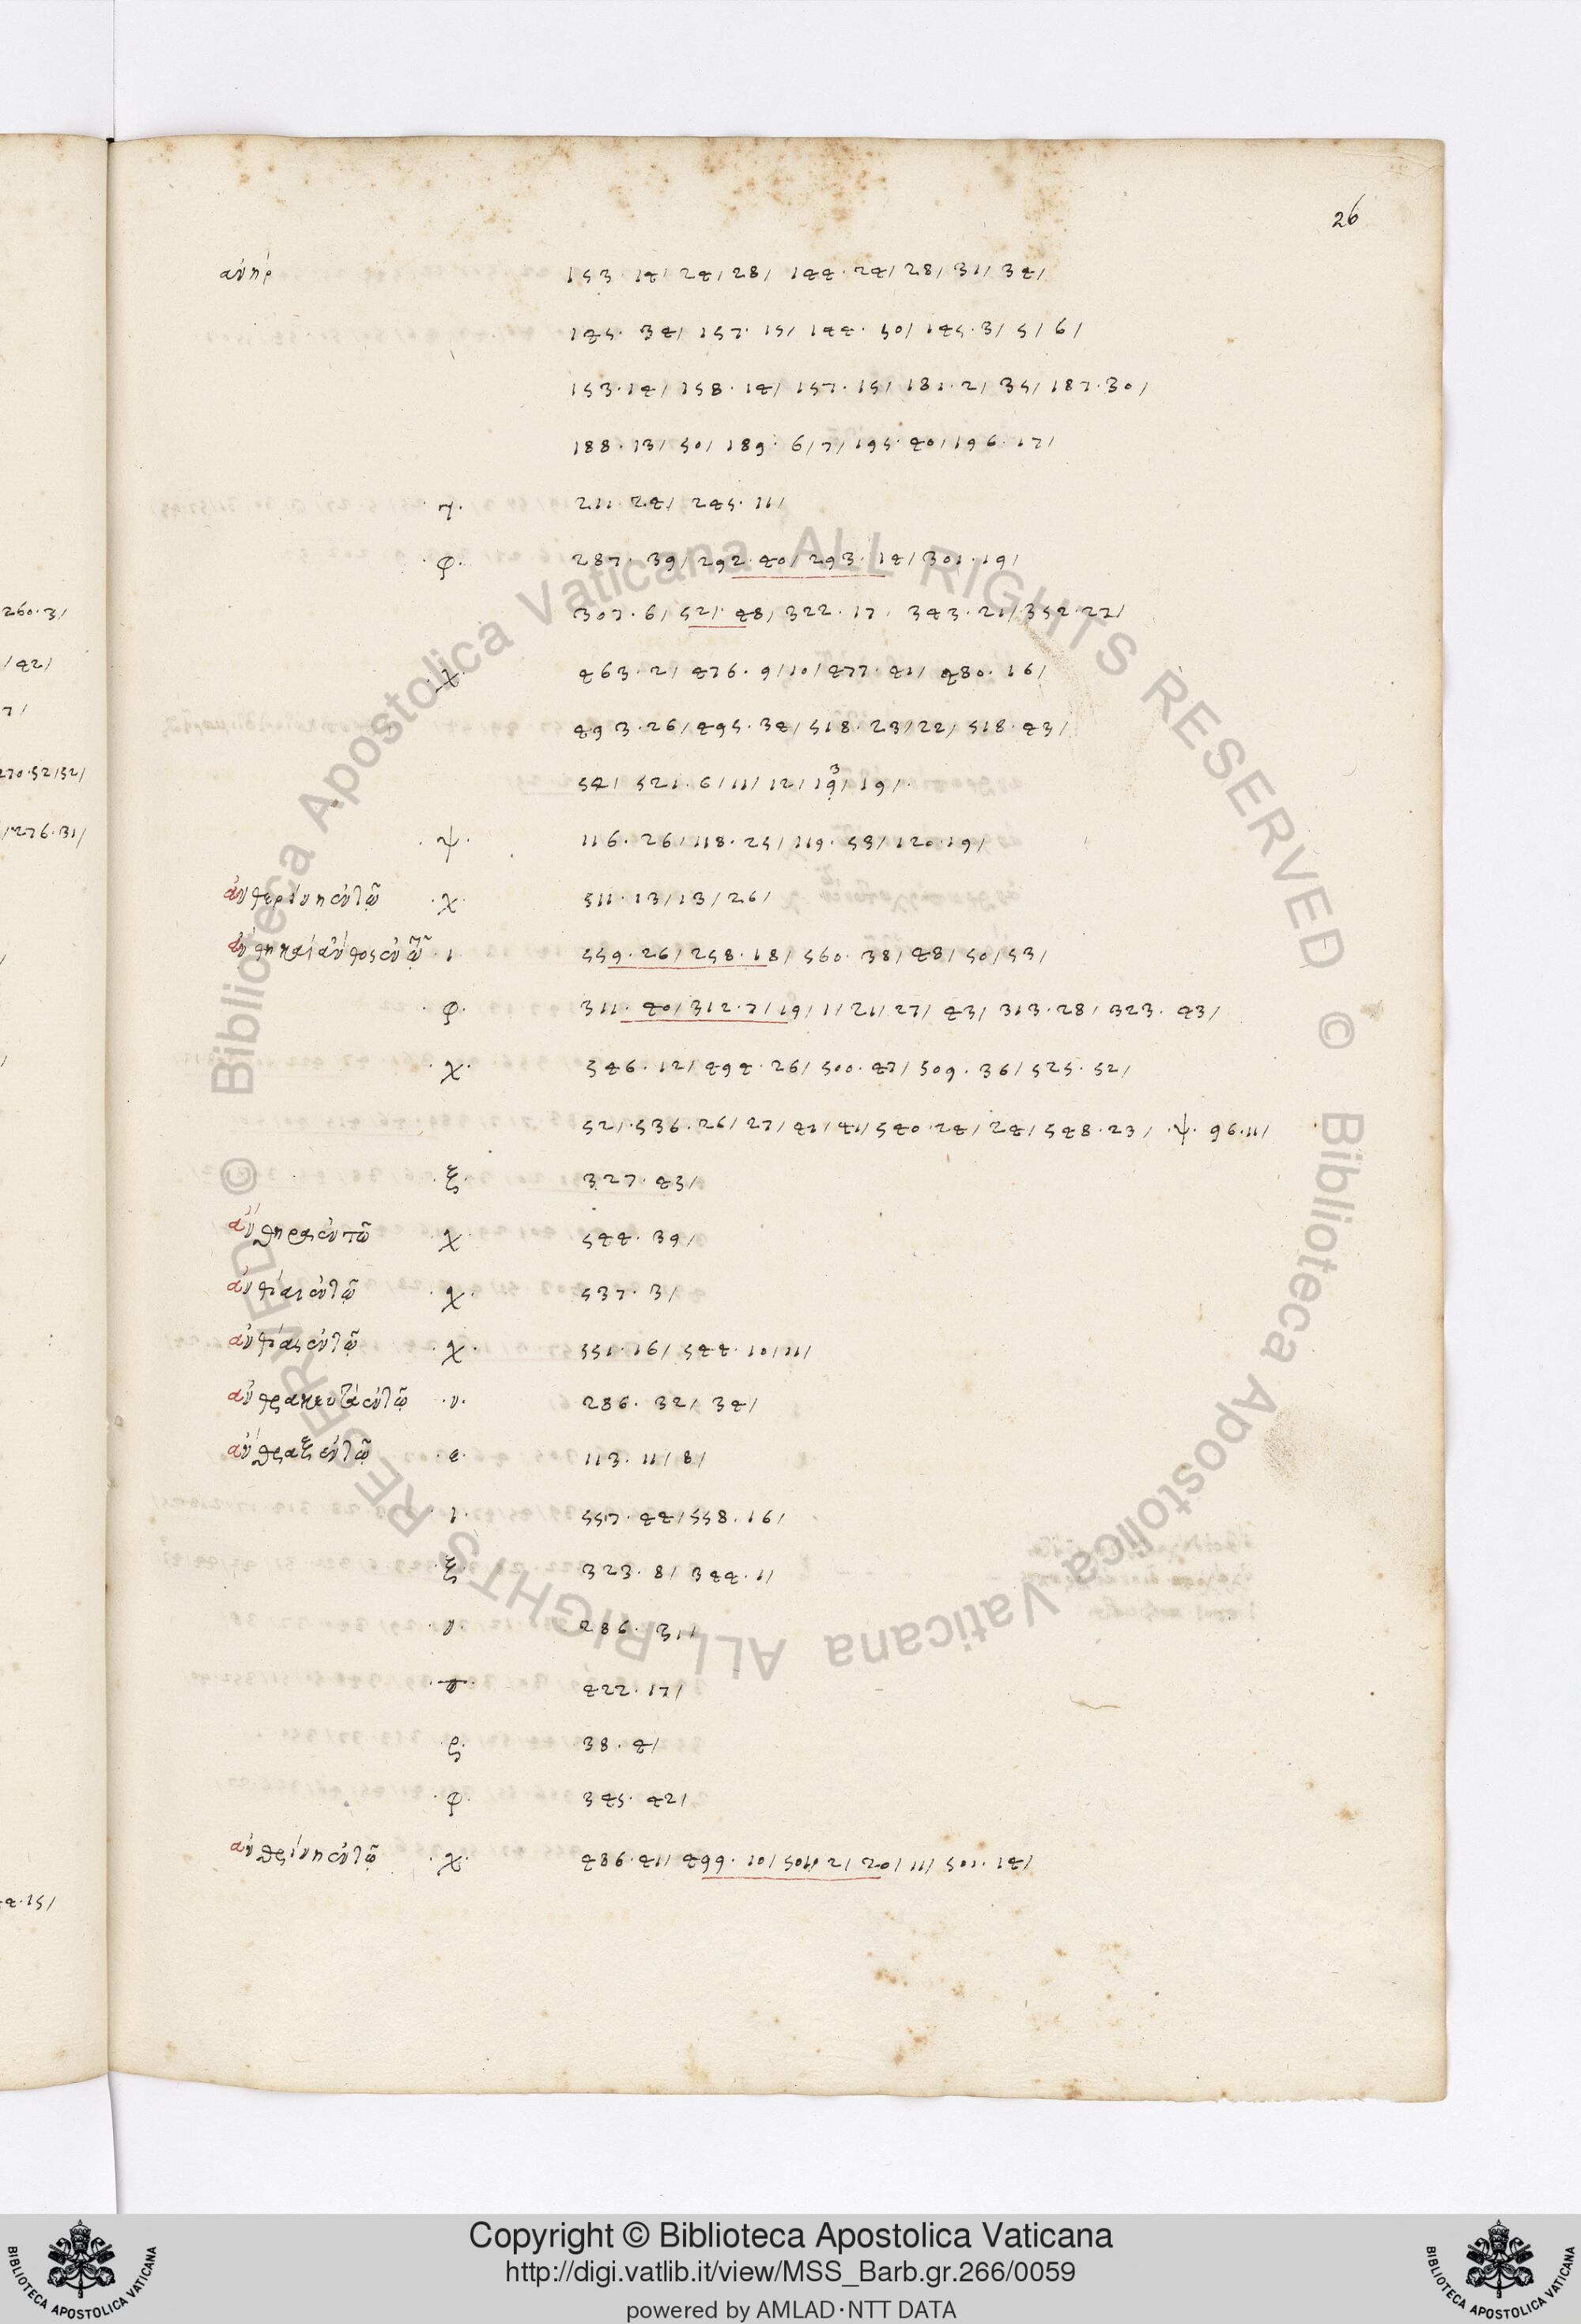 26
ἀνήρ 153 · 14/ 24/ 28/ 144 · 24/ 28/ 31/ 34/
145 · 34/ 157 · 15/ 144 · 50/ 145 · 3/ 5/ 6/
153 · 14/ 158 · 14/ 157 · 15/ 181 · 2/ 35/ 187 · 30/
188 · 13/ 50/ 189 · 6/ 7/ 195 · 40/ 196 · 17/
211 · 24/ 245 · 11/
· φ · 287 · 39/ 292 · 40/ 293 · 14/ 301 · 19/
307 · 6/ 52/ 48/ 322 · 17 · 343 · 21/ 352 · 27/
· χ · 463 · 2/ 476 · 9/ 10/ 477 · 41/ 480 · 16/
493 · 26/ 495 · 34/ 518 · 23/ 22/ 518 · 43/
54/ 521 · 6/ 11/ 12/ 19/ 19/
· ψ · 116 · 26/ 118 · 25/ 119 · 53/ 120 · 19/
ἀνθερίνη ἐν τῷ · χ · 511 · 13/ 13/ 26/
ἄνθη καὶ ἄνθος ἐν τῷ · ι · 559 · 26/ 258 · 18/ 560 · 38/ 48/ 50/ 53/
· φ · 311 · 40/ 312 · 7/ 19/ 1/ 21/ 27/ 43/ 313 · 28/ 323 · 43/
· χ · 346 · 12/ 494 · 26/ 500 · 47/ 509 · 36/ 525 · 52/
52/ · 536 · 26/ 27/ 41/ 41/ 540 · 24/ 24/ 548 · 23/ · ψ · 96 · 11/
· ξ · 327 · 43/
ἄνθηρας ἐν τῷ χ · 544 · 39/
ἀνθίαι ἐν τῷ · χ · 537 · 3/
ἀνθίας ἐν τῷ · χ · 551 · 16/ 544 · 10/ 11/
ἀνθρακευτὰ ἐν τῷ · ν · 286 · 32/ 34/
ἄνθραξ ἐν τῷ · ε · 113 · 11/ 8/
· ι · 557 · 44/ 558 · 16/
· ξ · 323 · 8/ 344 · 1/
· ν · 286 · 31/
422 · 17/
· ς · 38 · 4/
· φ · 345 · 42/
ἀνθρίνη ἐν τῷ · χ · 486 · 41/ 499 · 10/ 501/ 2/ 20/ 11/ 501 · 14/
260 · 3/
/ 42/
7/
270 · 52/ 52/
/ 276 · 31/
4 · 15/
Copyright © Biblioteca Apostolica Vaticana
http://digi.vatlib.it/view/MSS_Barb.gr.266/0059
powered by AMLAD·NTT DATA
BIBLIOTECA APOSTOLICA VATICANA
BIBLIOTECA APOSTOLICA VATICANA
© Biblioteca Apostolica Vaticana ALL RIGHTS RESERVED
© Biblioteca Apostolica Vaticana ALL RIGHTS RESERVED